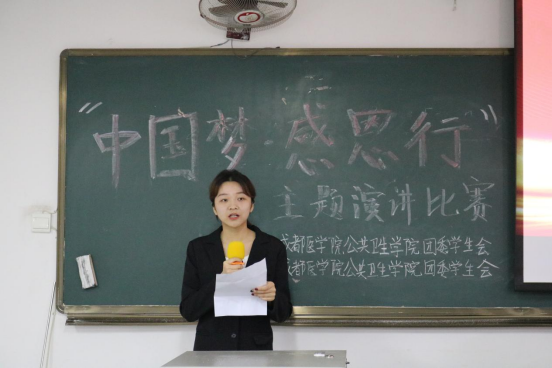 “中国梦·感恩行”
主题演讲比赛
成都医学院公共卫生学院团委学生会
成都医学院公共卫生学院团委学生会